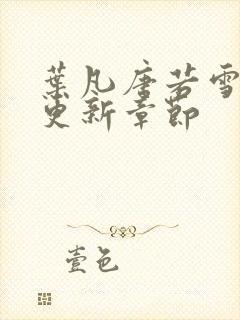 葉凡唐若雪
更新章節
壹色